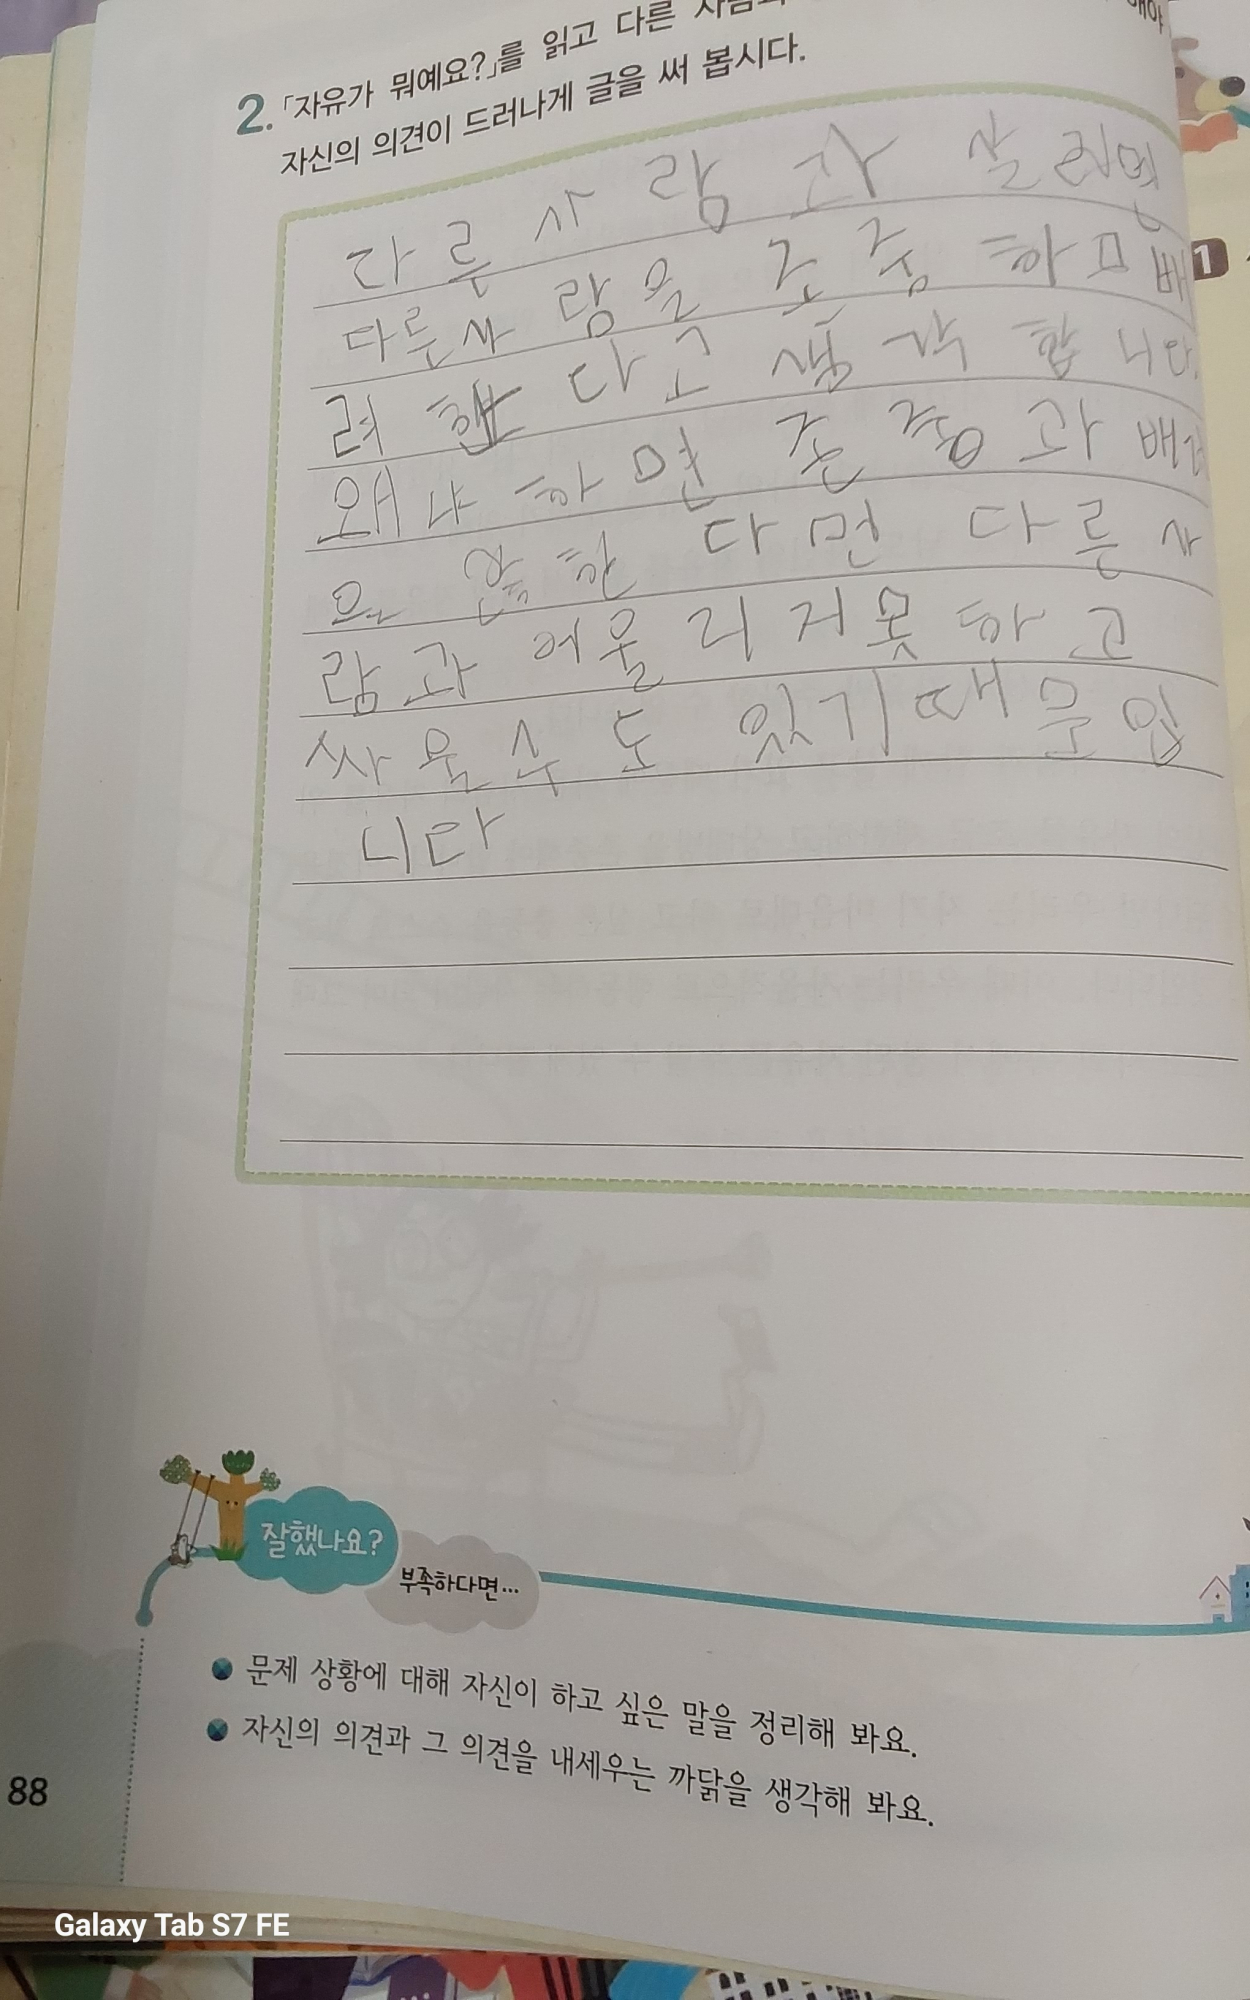 2. 「자유가 뭐예요?」를 읽고 다른
자신의 의견이 드러나게 글을 써 봅시다.
다른 사람과 살려면
다른사람을 존중하며 배
려 해야 한다고 생각합니다.
왜냐하면 존중과 배려
다면 다른 사
람과 어울리지못하고
싸울수도 있기때문입
니다
1
잘했나요?
부족하다면…
문제 상황에 대해 자신이 하고 싶은 말을 정리해 봐요.
자신의 의견과 그 의견을 내세우는 까닭을 생각해 봐요.
88
Galaxy Tab S7 FE